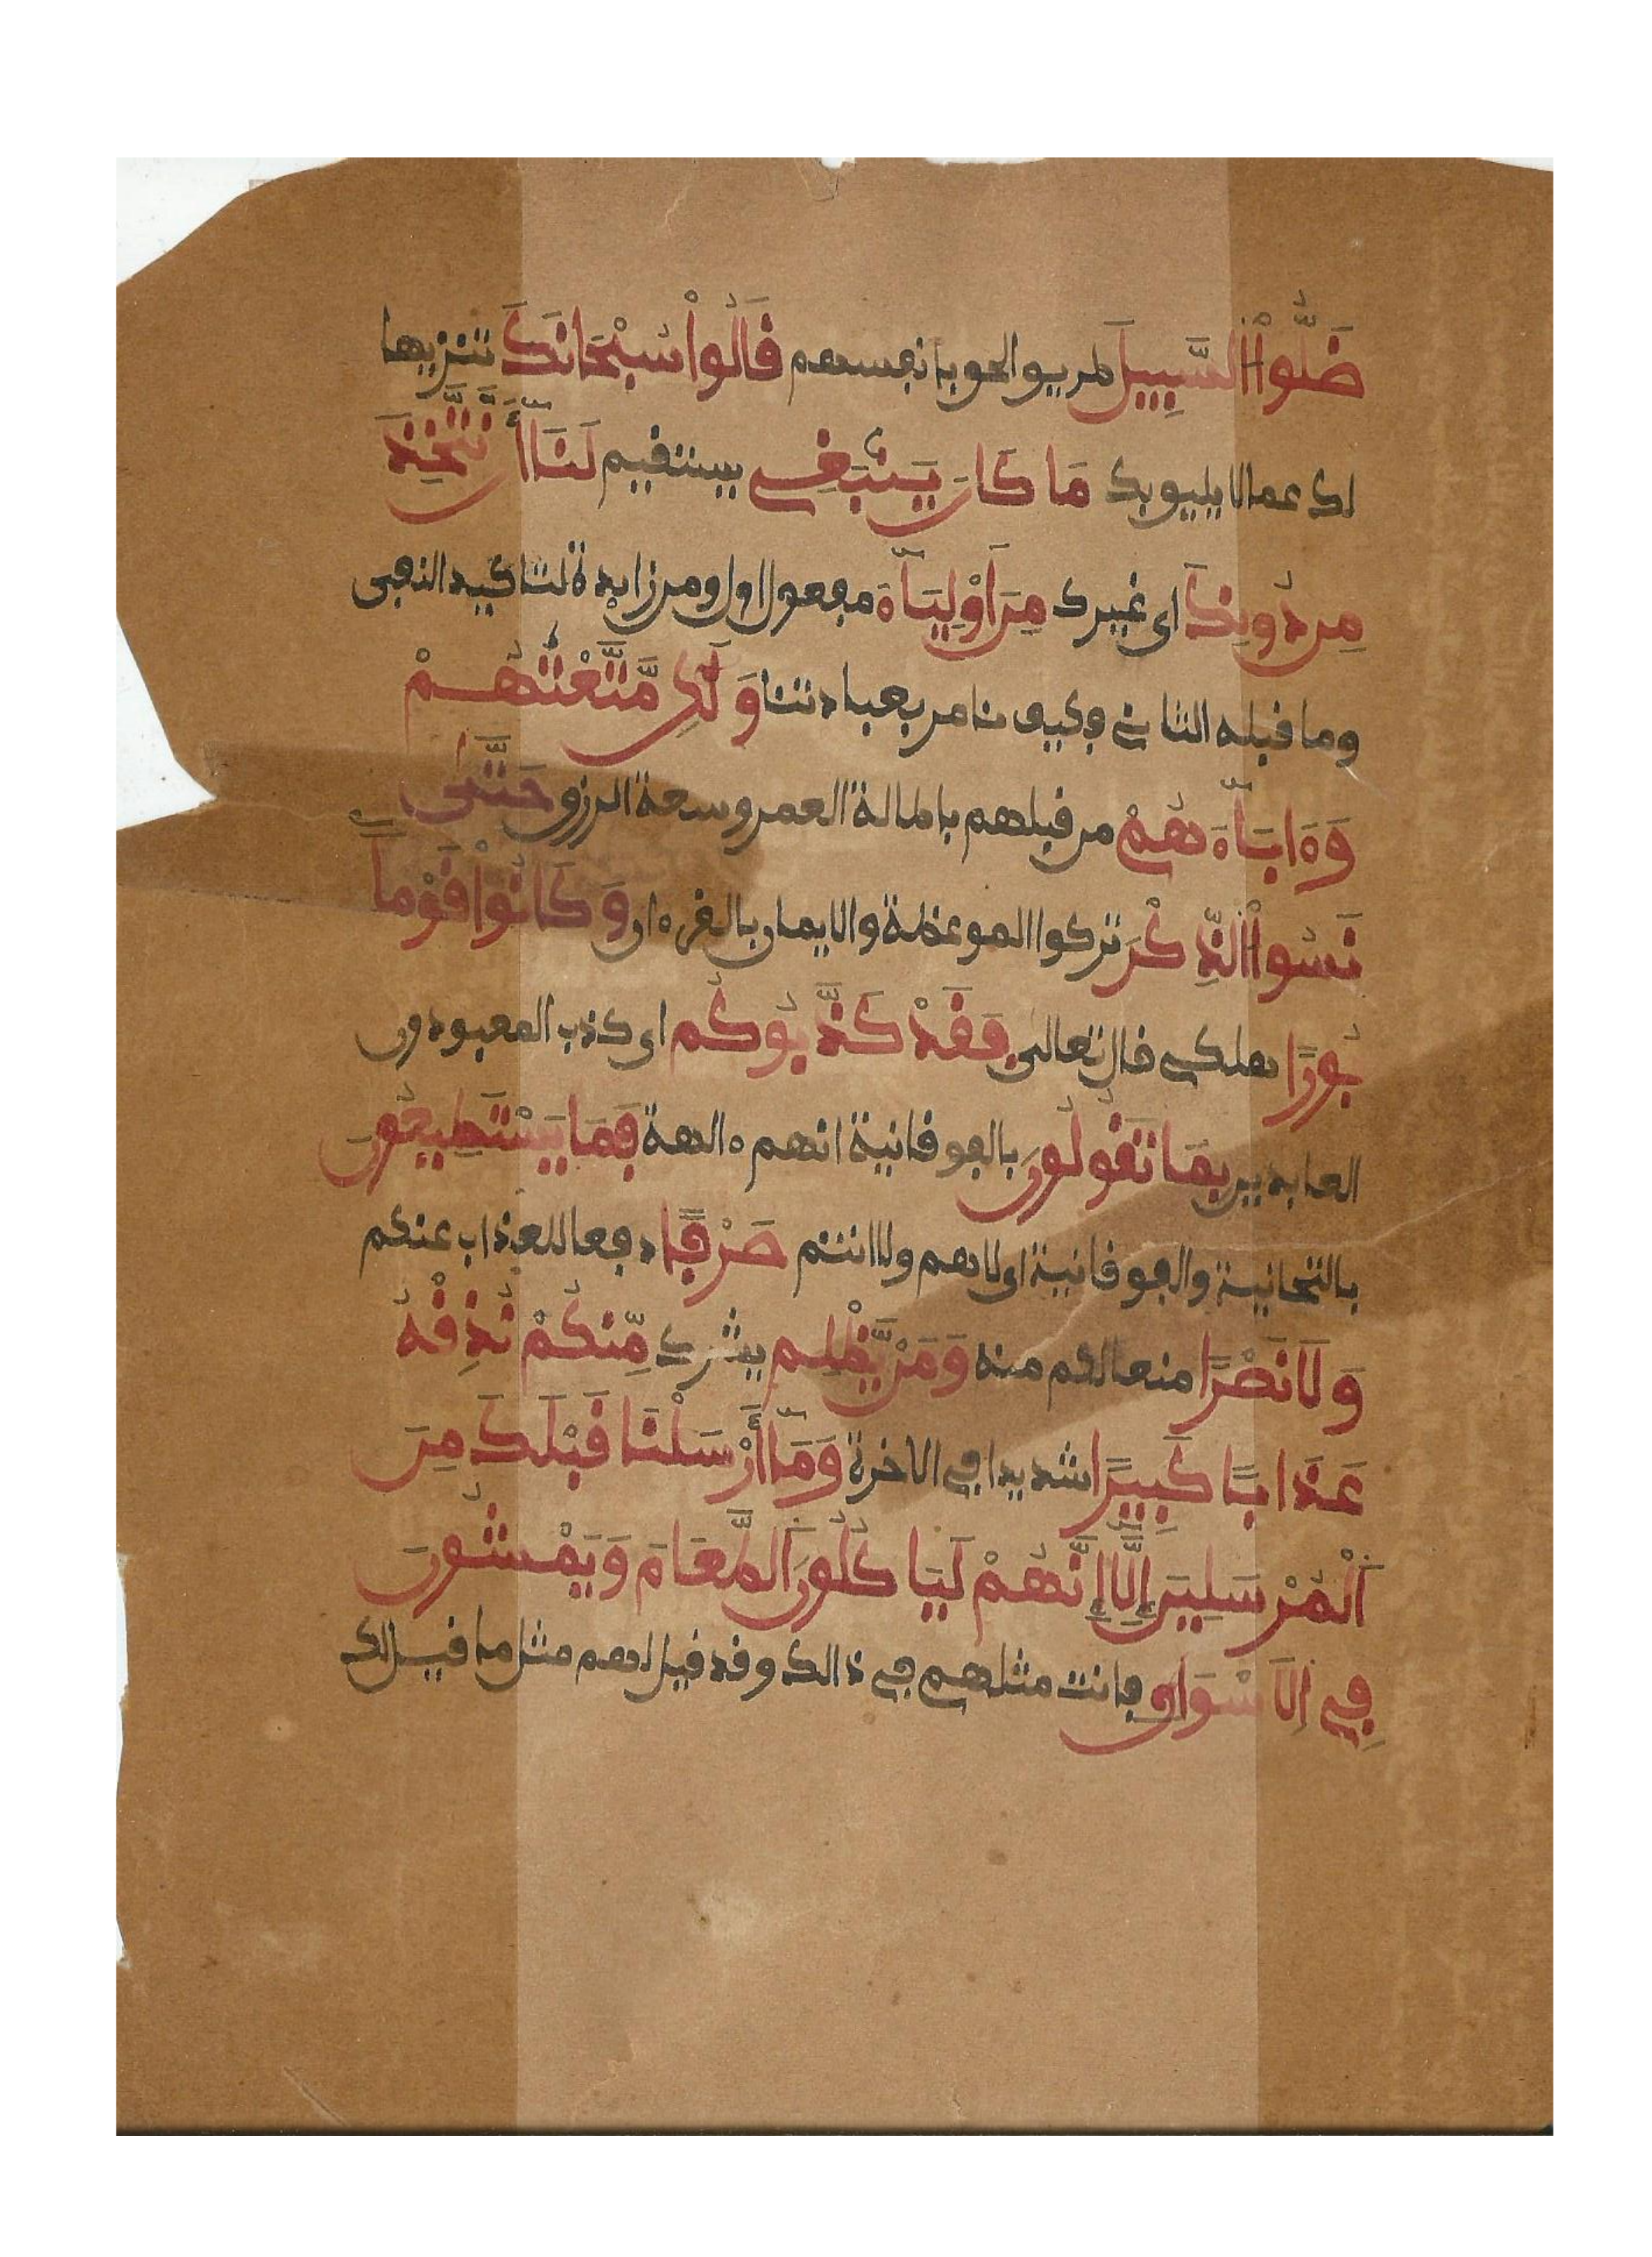 ضَلُّواْ السَّبِيلَ طريق الحق بانفسهم قَالُواْ سُبْحَانَكَ تنزيها
لك عما لا يليق بك مَا كَانَ يَنۢبَغِي يستقيم لَنَآ أَن نَّتَّخِذَ
مِن دُونِكَ اى غيرك مِنَ اَوْلِيَآءَ مفعول اول ومن زايدة لتاكيد النفى
وما قبله الثانى فكيف نامر بعبادتنا وَلَٰكِن مَّتَّعْتَهُمْ
وَءَابَآءَهُمْ من قبلهم باطالة العمر وسعة الرزق حَتَّىٰ
نَسُواْ الذِّكْرَ تركوا الموعظة والايمان بالقرءان وَكَانُواْ قَوْماَۢ
بُورًا هلكى قال تعالى فَقَدْ كَذَّبُوكُم اى كذب المعبودون
العابدين بِمَا تَقُولُونَ بالفوقانية انهم ءالهة فَمَا يَسْتَطِيعُونَ
بالتحانية والفوقانية اى لاهم ولا انتم صَرْفًا دفعا للعذاب عنكم
وَلَا نَصْرًا منعا لكم منه وَمَنْ يَّظْلِم يشرك مِّنكُمْ نُذِقْهُ
عَذَابًا كَبِيرًا شديدا فى الاخرة وَمَآ أَرْسَلْنَا قَبْلَكَ مِنَ
اَلْمُرْسَلِينَ إِلَّآ إِنَّهُمْ لَيَاكُلُونَ اَلطَّعَامَ وَيَمْشُونَ
فِي اِلَاسْوَاقِ فانت مثلهم فى ذالك وقد قيل لهم مثل ما قيل لك